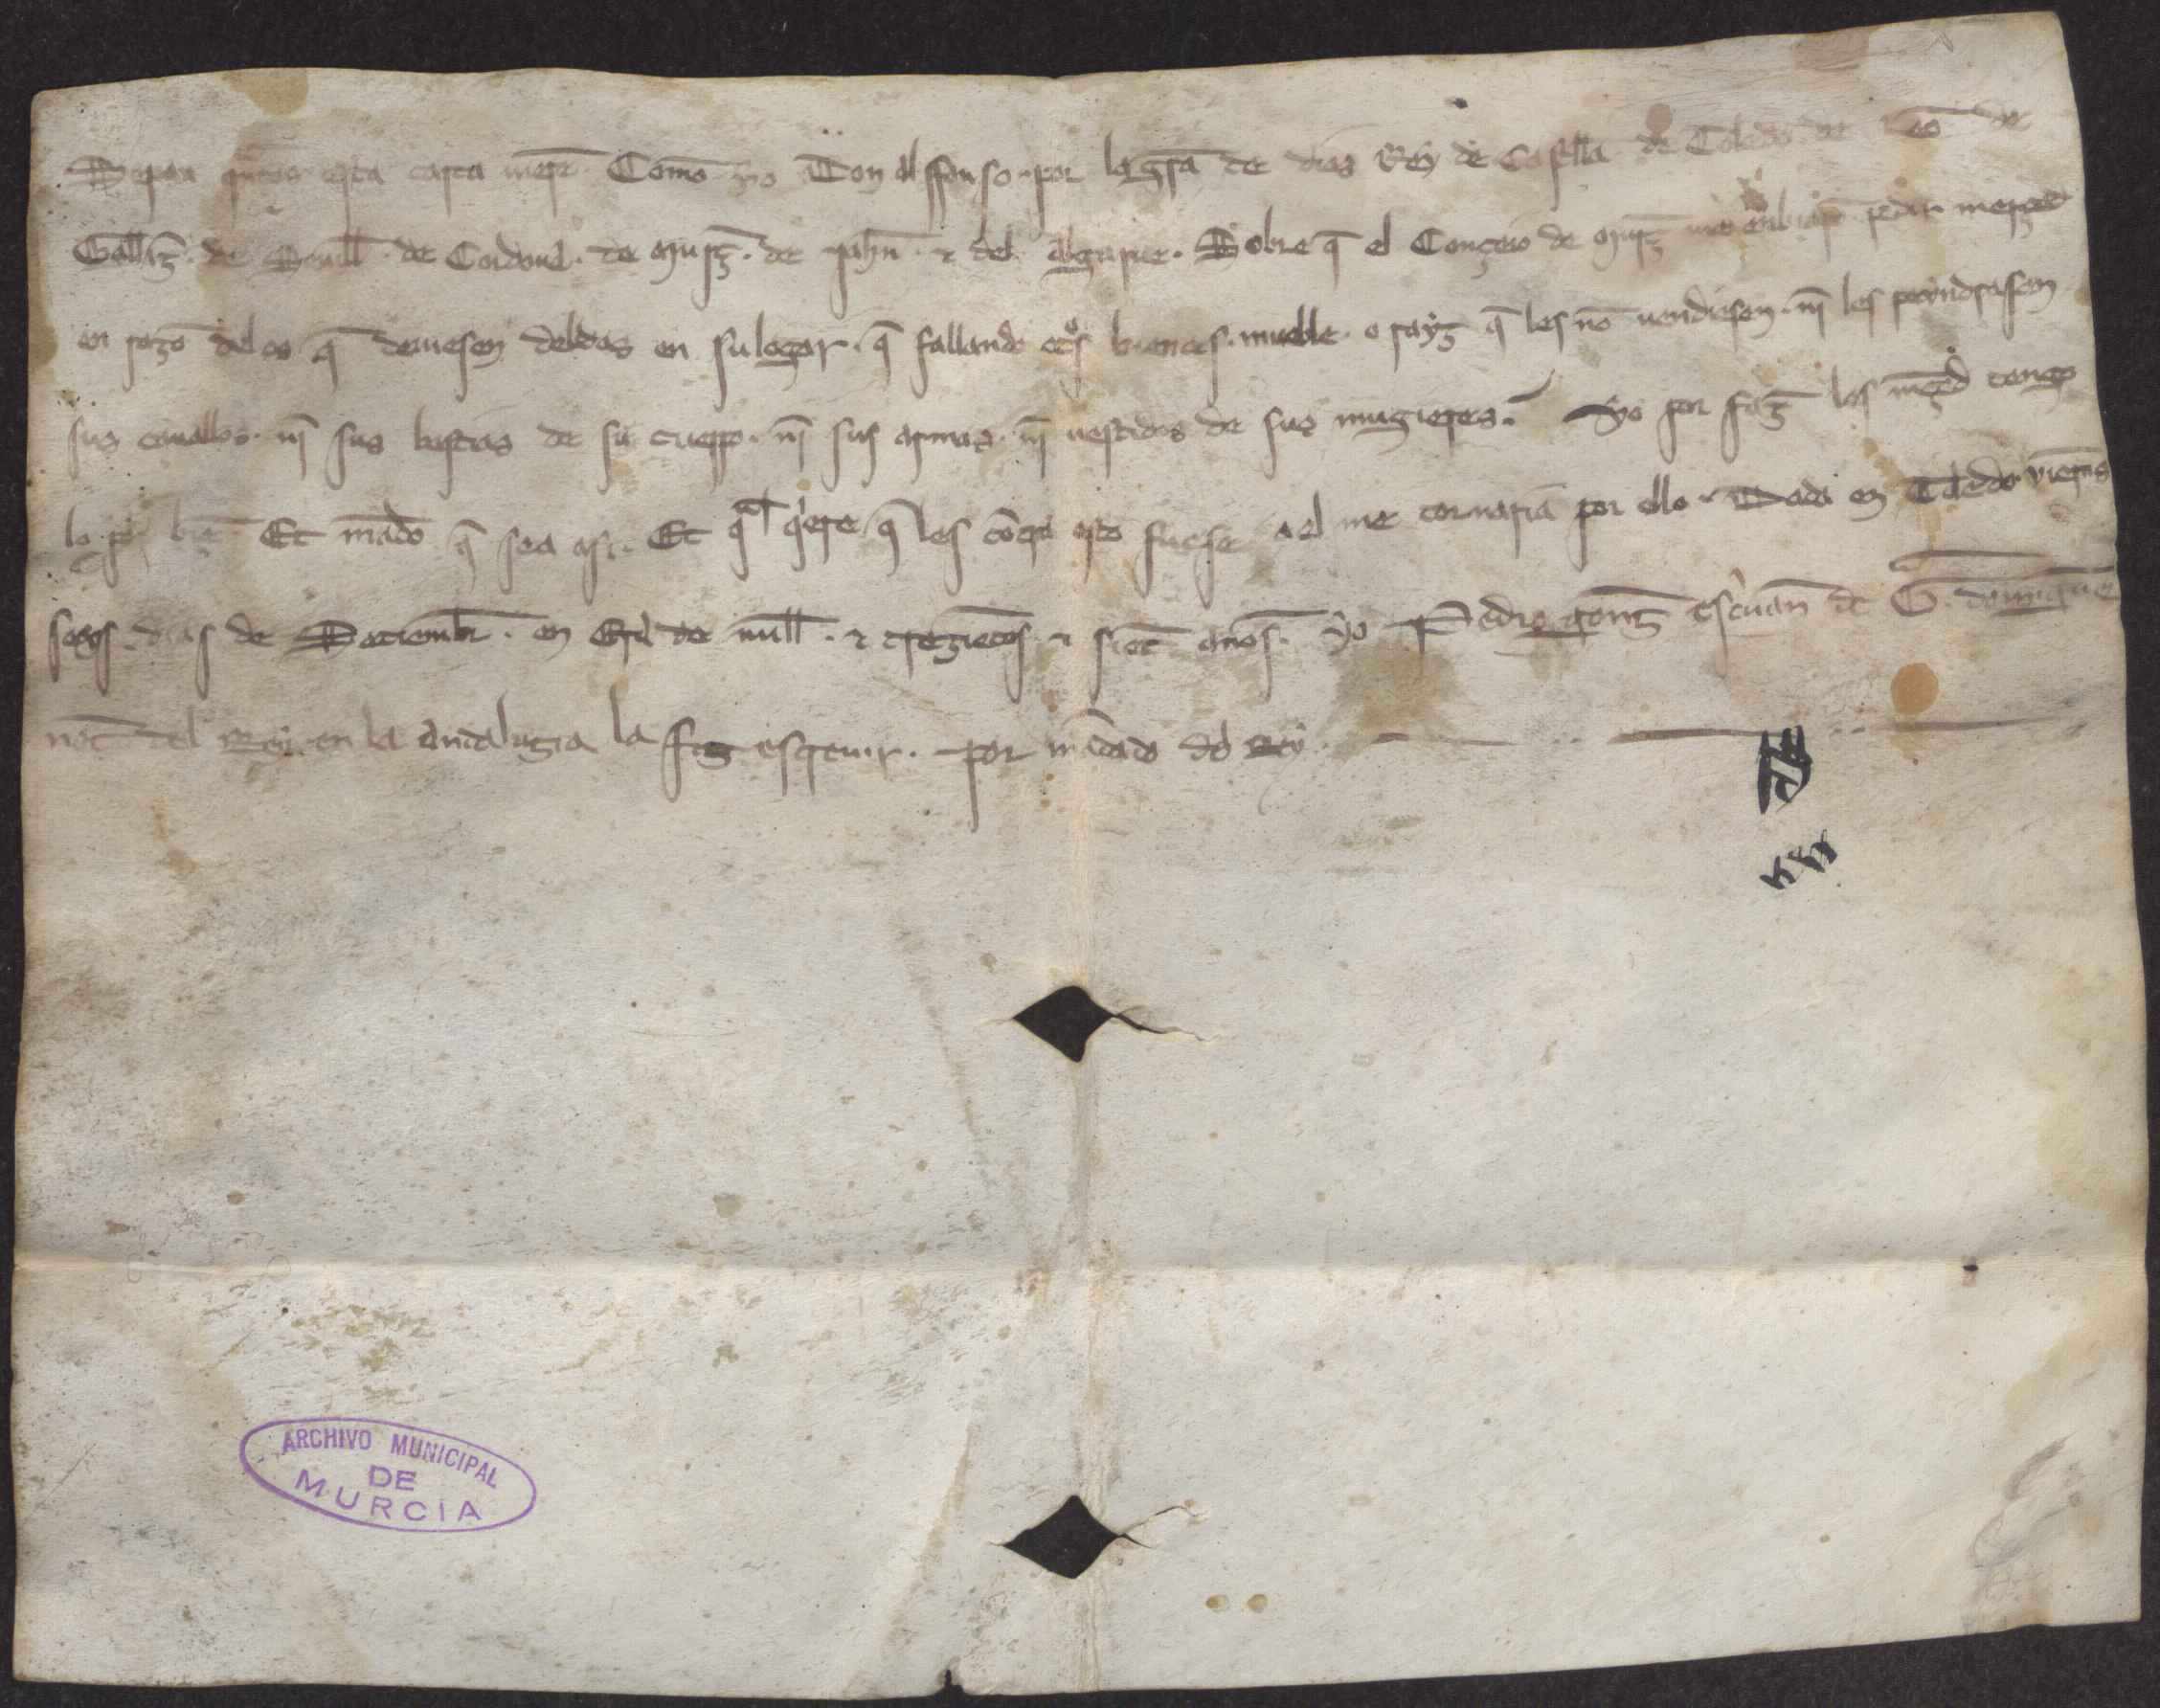 Sepan quãtos esta carta uierẽ. Como yo Don Alffonso por la grã de dios Rey de Castiella de Toledo de Leõ de
Gallizͣ. de Seuill. de Cordoua. de Murcͣ. de Jahñ. ⁊ del Algarue. Sobre q̃ el Conçeio de Murcͣ me enbiarõ pedir merçed
en razõ delos q̃ deuiesen debdas en su logar. q̃ fallando otͦs bienes. mueble. o rayz q̃ les nõ uendiesen. nj̃ les peyndrassen
sus cauallos. nj̃ sus bestias de su cuerpo. nj̃ sus armas. nj̃ uestidos de sus mugieres. Yo por faz les mͨed tengo
lo por biẽ Et mãdo q̃ sea asi. Et qͣl qͥere q̃ les cõtra esto fuesse a el me tornaria por ello. Dada en Toledo viernes
seys. dias de Deziembr. en Era de mill. ⁊ trezietos ⁊ siet anos. Yo Pedro gonz escͥuan de G. domingue
not del Rey. en la Andaluzia la fiz escreuir. por mãdado del Rey.
ARCHIVO MUNICIPAL
DE
MURCIA